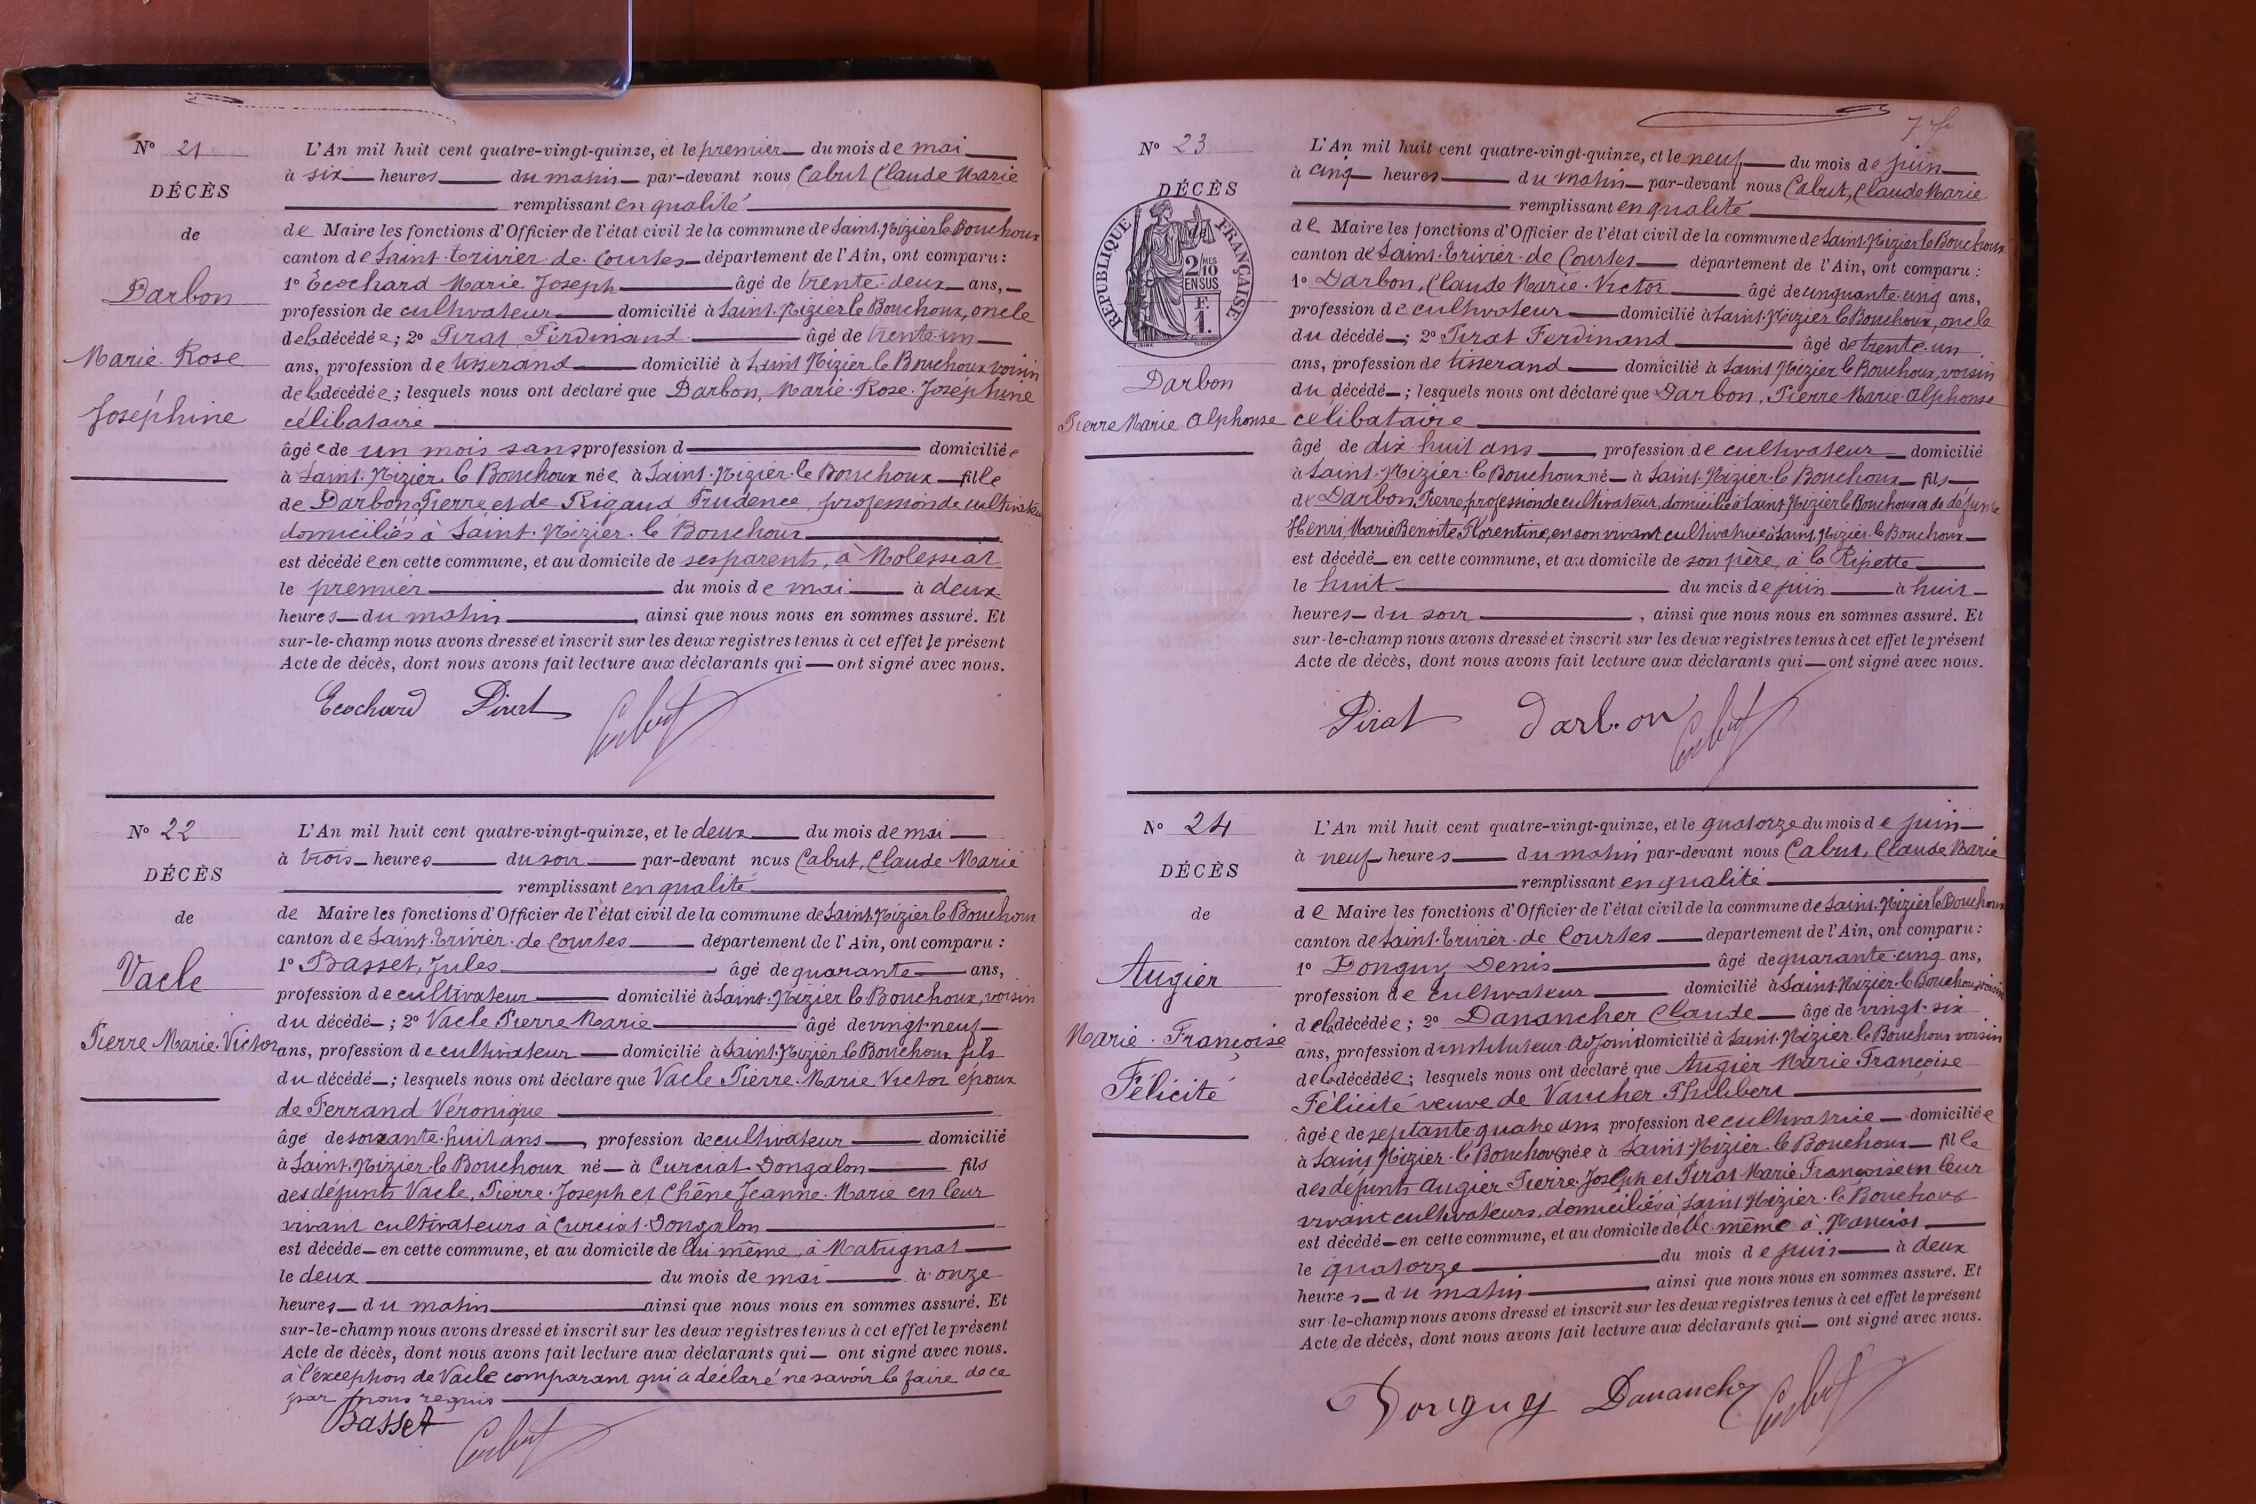 N° 21
DÉCÈS
de
Darbon
Marie Rose
Joséphine
L'An mil huit cent quatre-vingt-quinze, et le premier du mois de mai
à six heures du matin par-devant nous Cabut Claude Marie
remplissant en qualité
de Maire les fonctions d'Officier de l'état civil de la commune de Saint-Nizier le Bouchoux
canton de Saint-Trivier-de-Courtes département de l'Ain, ont comparu :
1° Ecochard Marie Joseph âgé de trente-deux ans,
profession de cultivateur domicilié à Saint-Nizier le Bouchoux, oncle
de la décédée; 2° Pirat, Ferdinand âgé de trente-un
ans, profession de tisserand domicilié à Saint Nizier le Bouchoux voisin
de la décédée; lesquels nous ont déclaré que Darbon, Marie-Rose-Joséphine
célibataire
âgée de un mois sans profession d domiciliée
à Saint-Nizier le Bouchoux née à Saint-Nizier-le Bouchoux fille
de Darbon Pierre et de Rigaud Prudence, profession de cultivateurs
domiciliés à Saint-Nizier-le Bouchoux
est décédée en cette commune, et au domicile de ses parents, à Molessiat
le premier du mois de mai à deux
heures du matin, ainsi que nous nous en sommes assuré. Et
sur-le-champ nous avons dressé et inscrit sur les deux registres tenus à cet effet le présent
Acte de décès, dont nous avons fait lecture aux déclarants qui ont signé avec nous.
Ecochard Pirat Cabut
N° 22
DÉCÈS
de
Vacle
Pierre Marie-Victor
L'An mil huit cent quatre-vingt-quinze, et le deux du mois de mai
à trois heures du soir par-devant nous Cabut, Claude Marie
remplissant en qualité
de Maire les fonctions d'Officier de l'état civil de la commune de Saint-Nizier le Bouchoux
canton de Saint-Trivier-de Courtes département de l'Ain, ont comparu :
1° Basset, Jules âgé de quarante ans,
profession de cultivateur domicilié à Saint-Nizier le Bouchoux, voisin
du décédé; 2° Vacle Pierre Marie âgé de vingt-neuf
ans, profession de cultivateur domicilié à Saint-Nizier le Bouchoux fils
du décédé; lesquels nous ont déclaré que Vacle Pierre-Marie Victor époux
de Ferrand Véronique
âgé de soixante-huit ans, profession de cultivateur domicilié
à Saint-Nizier-le Bouchoux né à Curciat-Dongalon fils
des défunts Vacle, Pierre-Joseph et Chêne Jeanne-Marie en leur
vivant cultivateurs à Curciat-Dongalon
est décédé en cette commune, et au domicile de lui même, à Matrignat
le deux du mois de mai à onze
heures du matin ainsi que nous nous en sommes assuré. Et
sur-le-champ nous avons dressé et inscrit sur les deux registres tenus à cet effet le présent
Acte de décès, dont nous avons fait lecture aux déclarants qui ont signé avec nous.
à l'exception de Vacle comparant qui a déclaré ne savoir le faire de ce
par nous requis
Basset Cabut
N° 23
DÉCÈS
de
RÉPUBLIQUE FRANÇAISE.
2/10 MES
EN SUS
F.
1.
Darbon
Pierre Marie Alphonse
L'An mil huit cent quatre-vingt-quinze, et le neuf du mois de juin
à cinq heures du matin par-devant nous Cabut, Claude Marie
remplissant en qualité
de Maire les fonctions d'Officier de l'état civil de la commune de Saint-Nizier le Bouchoux
canton de Saint-Trivier-de Courtes département de l'Ain, ont comparu :
1° Darbon, Claude Marie-Victor âgé de cinquante-cinq ans,
profession de cultivateur domicilié à Saint-Nizier le Bouchoux, oncle
du décédé; 2° Pirat Ferdinand âgé de trente-un
ans, profession de tisserand domicilié à Saint Nizier le Bouchoux, voisin
du décédé; lesquels nous ont déclaré que Darbon, Pierre Marie-Alphonse
célibataire
âgé de dix-huit ans, profession de cultivateur domicilié
à Saint-Nizier-le Bouchoux né à Saint-Nizier-le Bouchoux fils
de Darbon, Pierre, profession de cultivateur, domicilié à Saint-Nizier le Bouchoux et de défunte
Henri, Marie Benoite Florentine, en son vivant cultivatrice à Saint-Nizier-le Bouchoux
est décédé en cette commune, et au domicile de son père, à la Ripette
le huit du mois de juin à huit
heures du soir, ainsi que nous nous en sommes assuré. Et
sur-le-champ nous avons dressé et inscrit sur les deux registres tenus à cet effet le présent
Acte de décès, dont nous avons fait lecture aux déclarants qui ont signé avec nous.
Pirat Darbon Cabut
N° 24
DÉCÈS
de
Augier
Marie-Françoise
Félicité
L'An mil huit cent quatre-vingt-quinze, et le quatorze du mois de juin
à neuf heures du matin par-devant nous Cabut, Claude Marie
remplissant en qualité
de Maire les fonctions d'Officier de l'état civil de la commune de Saint-Nizier le Bouchoux
canton de Saint-Trivier-de Courtes département de l'Ain, ont comparu :
1° Donguy Denis âgé de quarante-cinq ans,
profession de cultivateur domicilié à Saint-Nizier-le Bouchoux voisin
de la décédée; 2° Danancher Claude âgé de vingt-six
ans, profession d'instituteur-adjoint domicilié à Saint-Nizier-le Bouchoux voisin
de la décédée; lesquels nous ont déclaré que Augier Marie Françoise
Félicité veuve de Vaucher Philibert
âgée de septante-quatre ans profession de cultivatrice domiciliée
à Saint Nizier-le Bouchoux née à Saint-Nizier-le Bouchoux fille
des défunts Augier Pierre-Joseph et Pirat Marie Françoise en leur
vivant cultivateurs, domiciliés à Saint-Nizier-le Bouchoux
est décédé en cette commune, et au domicile de elle même à
le quatorze du mois de juin à deux
heures du matin, ainsi que nous nous en sommes assuré. Et
sur-le-champ nous avons dressé et inscrit sur les deux registres tenus à cet effet le présent
Acte de décès, dont nous avons fait lecture aux déclarants qui ont signé avec nous.
Donguy Danancher Cabut